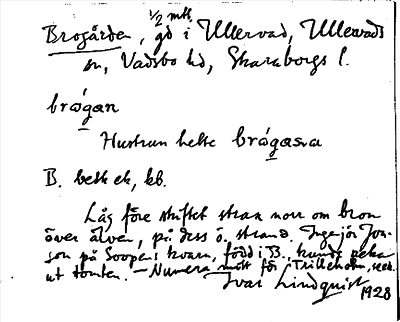 Brogården, 1/2 mtl, gd i Ullervad, Ullervads
sn, Vadsbo hd, Skaraborgs l.
brågan
Hustrun hette brågasva
B. bettek, kb.
Låg före skiftet strax norr om bron
över älven, på dess ö. strand. Ingejör Jon-
son på Soopens kvarn, född i B., kunde peka
ut tomten. — Numera mitt för Trilleholm, s.e.k.
Ivar Lindquist
1928